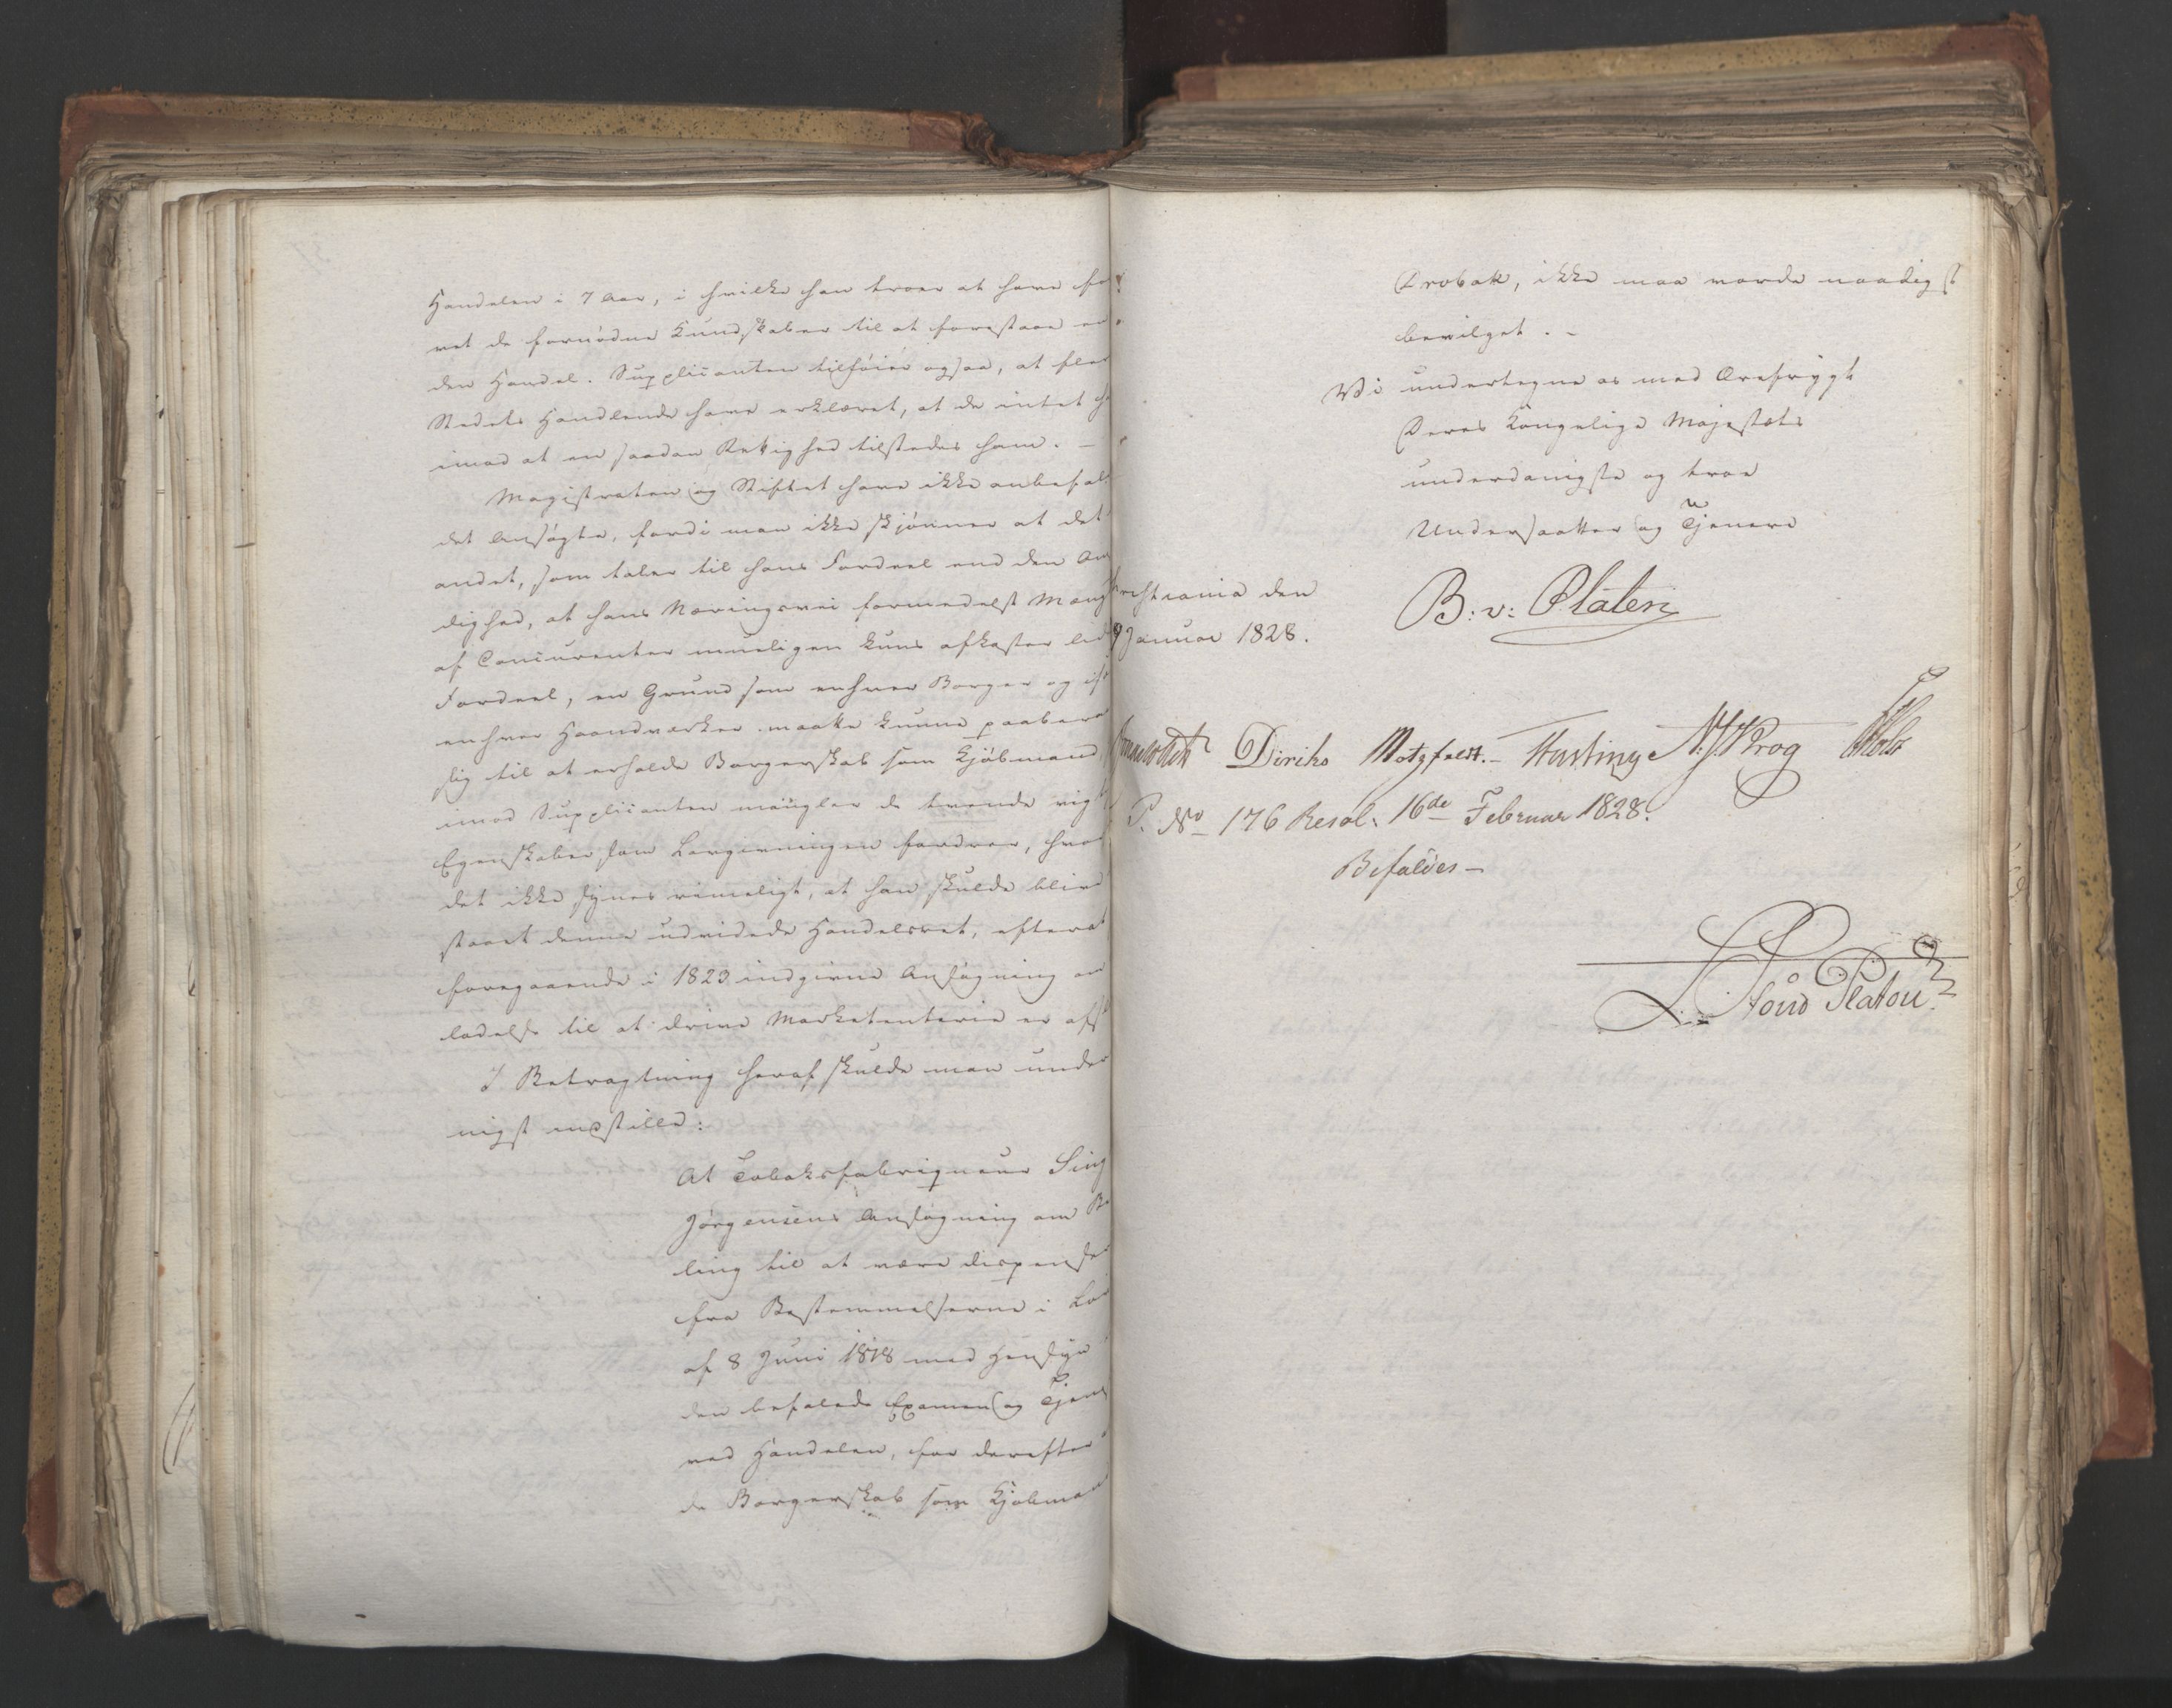 Handelen i 7 Aar, i hvilke han troer at have
vet de fornødne Kundskaber til at forestaae
den Handel. Supplicanten tilføier ogsaa, at
Stedets Handlende have erklæret, at de intet
imod at en saadan Rettighed tilstedes ham. –
Magistraten og Stiftet have ikke anbefal
det Ansøgte, fordi man ikke skjønner at det
andet, som taler til hans Fordeel end den
dighed, at hans Næringsvei formedelst
af Concurenter mueligen kuns afkaster
Fordeel, en Grund som enhver Borger og
enhver Haandværker maatte kunne paabera
sig til at erholde Borgerskab som Kjøbmand,
imod Supplicanten mangler de tvende
Egenskaber som Lovgivningen fordrer, hvor
det ikke synes rimeligt, at han skulde blive
staaet denne udvidede Handelsret, efterat
foregaaende i 1823 indgivne Ansøgning om
ladelse til at drive Marketenterie er
I Betragtning heraf skulde man under
nigst indstille:
At Tobaksfabriqueur
Jørgensens Ansøgning om
ling til at være dispense
fra Bestemmelserne i Lov
af 8 Juni 1818 med Hensyn
den befalede Examen og
ved Handelen, for derefter
de Borgerskab som Kjøbman
Drøbak, ikke maa vorde naadigst
bevilget. –
Vi undertegne os med Ærefrygt
Deres Kongelige Majestæts
underdanigste og troe
Undersaatter og Tjenere
den
Januar 1828.
B. v: Platen
Diriks Motzfeldt. – N. J. Krog Holst
P. No 176 Resol. 16de Februar 1828.
Befaldes –
Platou